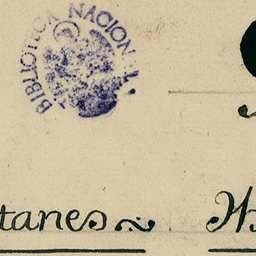 BIBLIOTECA NACIONAL
tanes